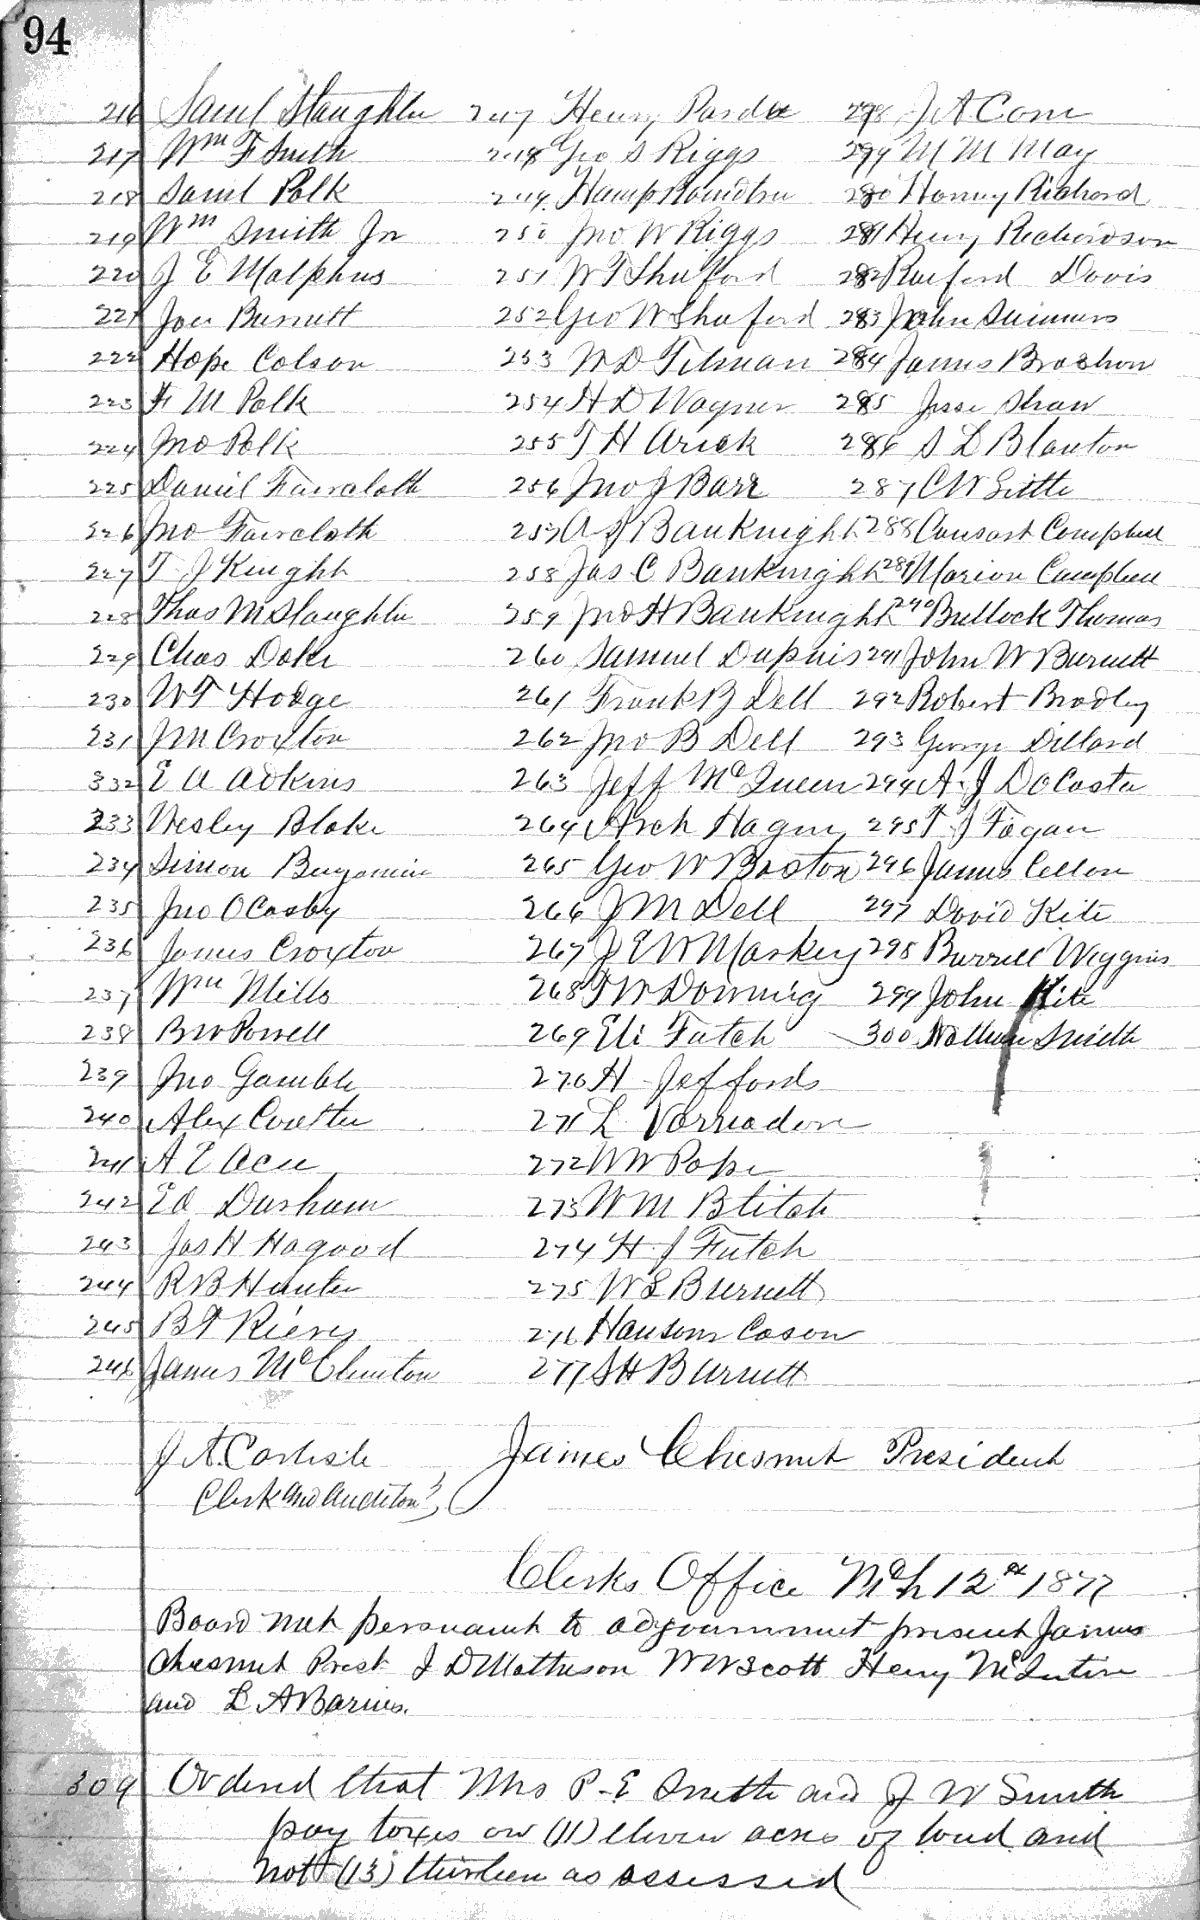 94
216 Saml Slaughter 247 Henry Pardee 278 J A Cone
217 Wm F Smith 248 Geo S Riggs 279 M M May
218 Saml Polk 249 Hamp Hamilton 280 Henry Richard
219 Wm Smith Jr 250 Jno W Riggs 281 Henry Richardson
220 J E Malphus 251 W T Shuford 282 Raiford Davis
221 Joe Burnett 252 Geo W Shuford 283 John Summers
222 Hope Colson 253 W D Tilman 284 James Brashon
223 F M Polk 254 H D Wagner 285 Jesse Shaw
224 Jno Polk 255 T H Arick 286 S L Blanton
225 Daniel Faircloth 256 Jno J Barr 287 C W Little
226 Jno Faircloth 257 A S Bauknight 288 Campbell
227 T J Knight 258 Jas C Bauknight 289 Marion Campbell
228 Thos M Slaughter 259 Jno H Bauknight 290 Bullock Thomas
229 Chas Doke 260 Samuel Dupuis 291 John W Burnett
230 W T Hodge 261 Frank B Dell 292 Robert Bradley
231 J M Croxton 262 Jno B Dell 293 George Dillard
332 E A Adkins 263 Jeff McQueen 294 A. J DaCosta
233 Wesley Blake 264 Arch Hague 295 T J Fagan
234 Simon Benjamin 265 Geo W Boston 296 James Cellon
235 Jno O Casby 266 J M Dell 297 David Kite
236 James Croxton 267 J E W Markey 298 Burrell Wiggins
237 Wm Mills 268 T W Downing 299 John Kite
238 B W Powell 269 Eli Futch 300 Nathan Smith
239 Jno Gamble 270 H Jeffords
240 Alex Coulter 271 L Varnadore
241 A E Acee 272 W W Pope
242 Ed Durham 273 W M Blitch
243 Jas H Hagood 274 H. J Futch
244 R B Hunter 275 W S Burnett
245 B F Rivers 276 Cason
246 James McClinton 277 S H Burnett
J. A. Carlisle James Chesnut President
Clerk and Auditor
Clerks Office Mch 12th 1877
Board met persuant to adjournment present James
Chesnut Prest J D Matheson W W Scott Henry
and L A Barnes.
309 Ordered that Mrs P. E Smith and J W Smith
pay taxes on (11) eleven acres of land and
not (13) thirteen as assessed